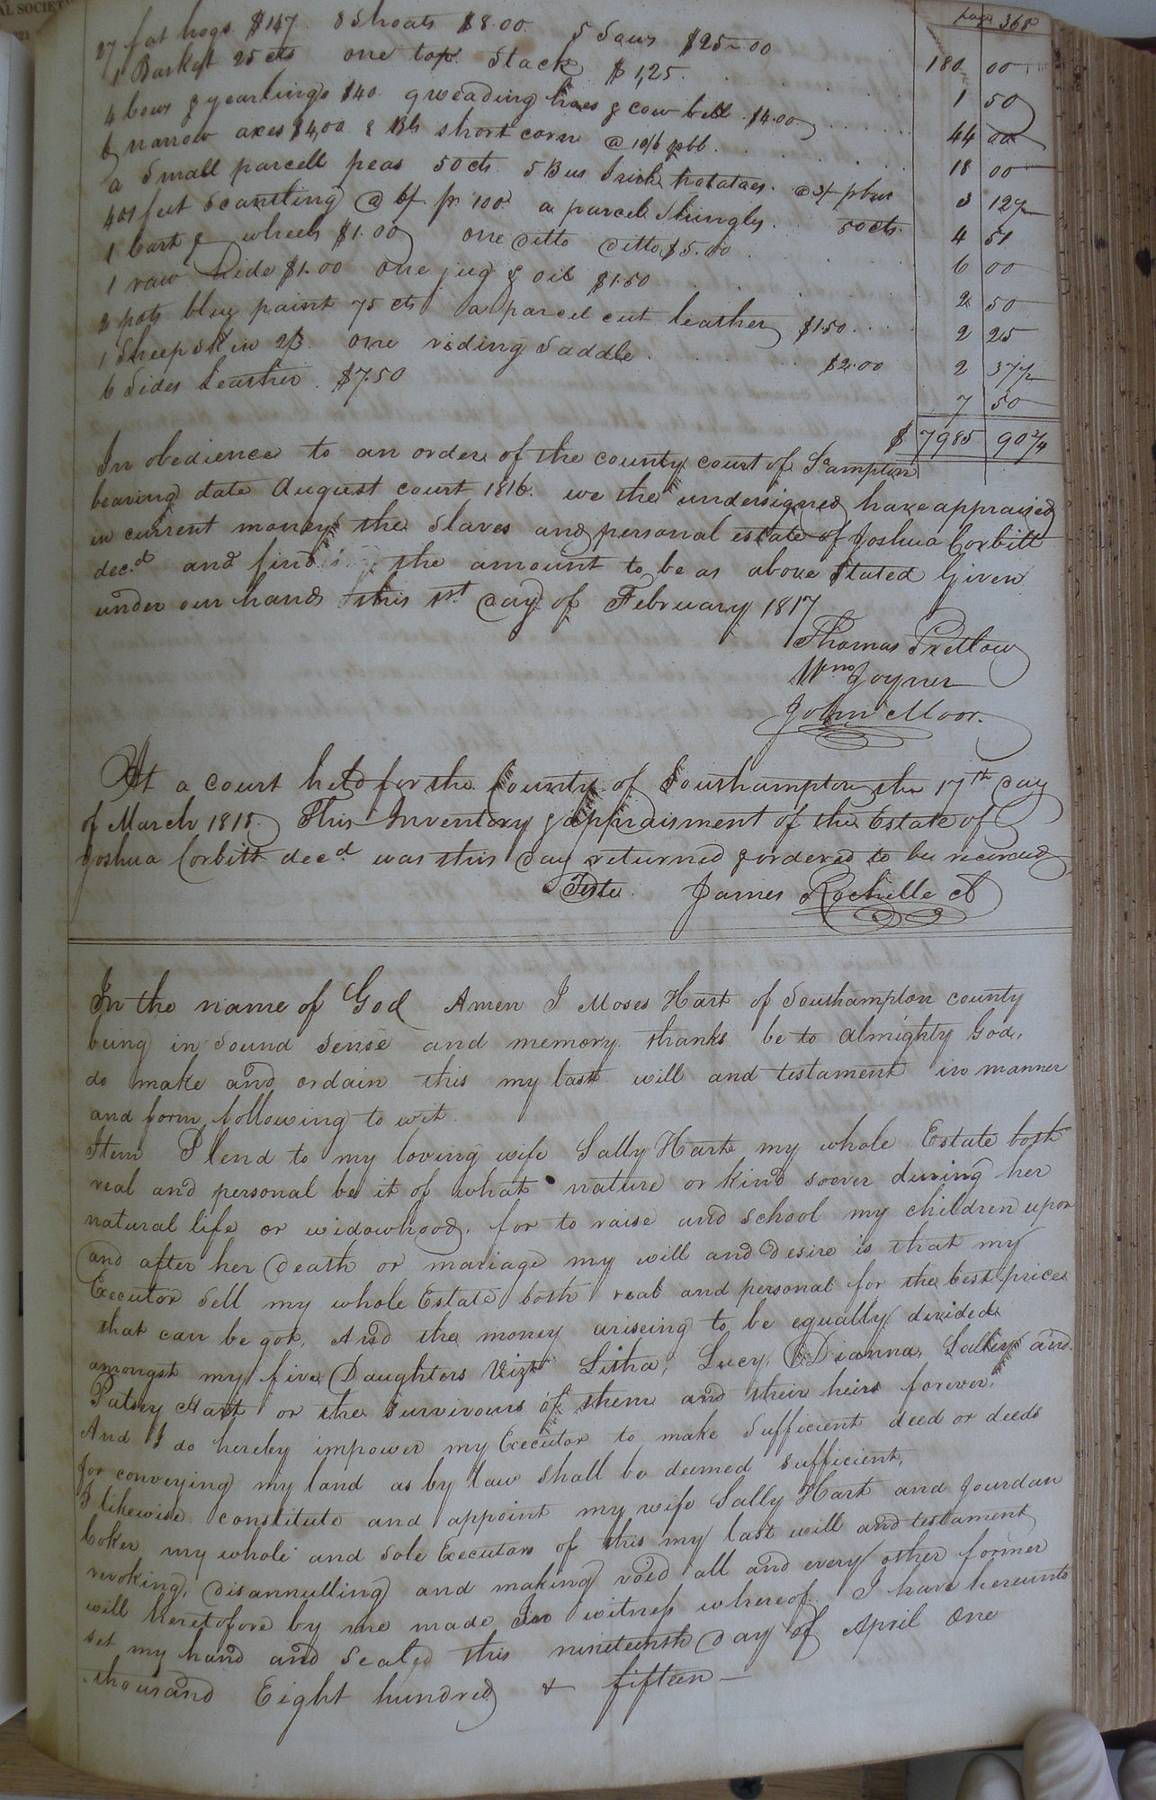 AL SOCIET
page 368
27 fat hogs $147. 8 Shoats $8.00. 5 Saws $25-00 180 00
1 Basket 25 cts one top Stack $1,25. 1 50
4 Cows & yearlings $40. 9 weading hoes & cow bell $4.00 44 00
6 narrow axes $4,00 & Bls short corn @ 10/6 pbb. 18 00
a Small parcell peas 50 cts. 5 Bus potatoes. @ 3/ pbus 3 12½
401 feet Scantling @ 6/ pr 100 a parcel Shingles 50 cts. 4 51
1 Cart & wheels $1.00 one ditto ditto $5.00 6 00
1 raw hide $1.00 one jug & oil $1.50 2 50
2 pots blue paint 75 cts a parcel cut leather $1.50 2 25
1 Sheep Skin 2/3. one riding Saddle $2.00 2 37½
6 Sides Leather $7.50 7 50
$ 7985 90¾
In obedience to an order of the county court of S'ampton
bearing date August court 1816. we the undersigned have appraised
in current money the Slaves and personal estate of Joshua Corbitt
decd and find the amount to be as above Stated Given
under our hands this 1st day of February 1817
Thomas Pretlow
Wm Joyner
John Moor.
At a court held for the County of Southampton the 17th day
of March 1818 This Inventory & appraisment of the Estate of
Joshua Corbitt decd was this day returned & ordered to be recorded
Teste. James Rochelle
In the name of God Amen I Moses Hart of Southampton county
being in sound sense and memory thanks be to almighty God,
do make and ordain this my last will and testament in manner
and form following to wit.
Item I lend to my loving wife Sally Hart my whole Estate both
real and personal be it of what nature or kind soever during her
natural life or widowhood, for to raise and school my children upon
and after her death or mariage my will and desire is that my
Executor sell my whole Estate both real and personal for the best price
that can be got, And the money ariseing to be equally divided
amongst my five Daughters Vizt Litha, Lucy, Dianna, Salley and
Patsey Hart or the survivours of them and their heirs forever.
And I do hereby impower my Executor to make Sufficient deed or deeds
for conveying my land as by law Shall be deemed sufficient,
I likewise constitute and appoint my wife Sally Hart and Jourdan
Coker my whole and sole Executors of this my last will and testament
revoking, disannulling and making void all and every other former
will heretofore by me made In witness whereof I have hereunto
set my hand and Sealed this nineteenth day of April One
thousand Eight hundred & fifteen